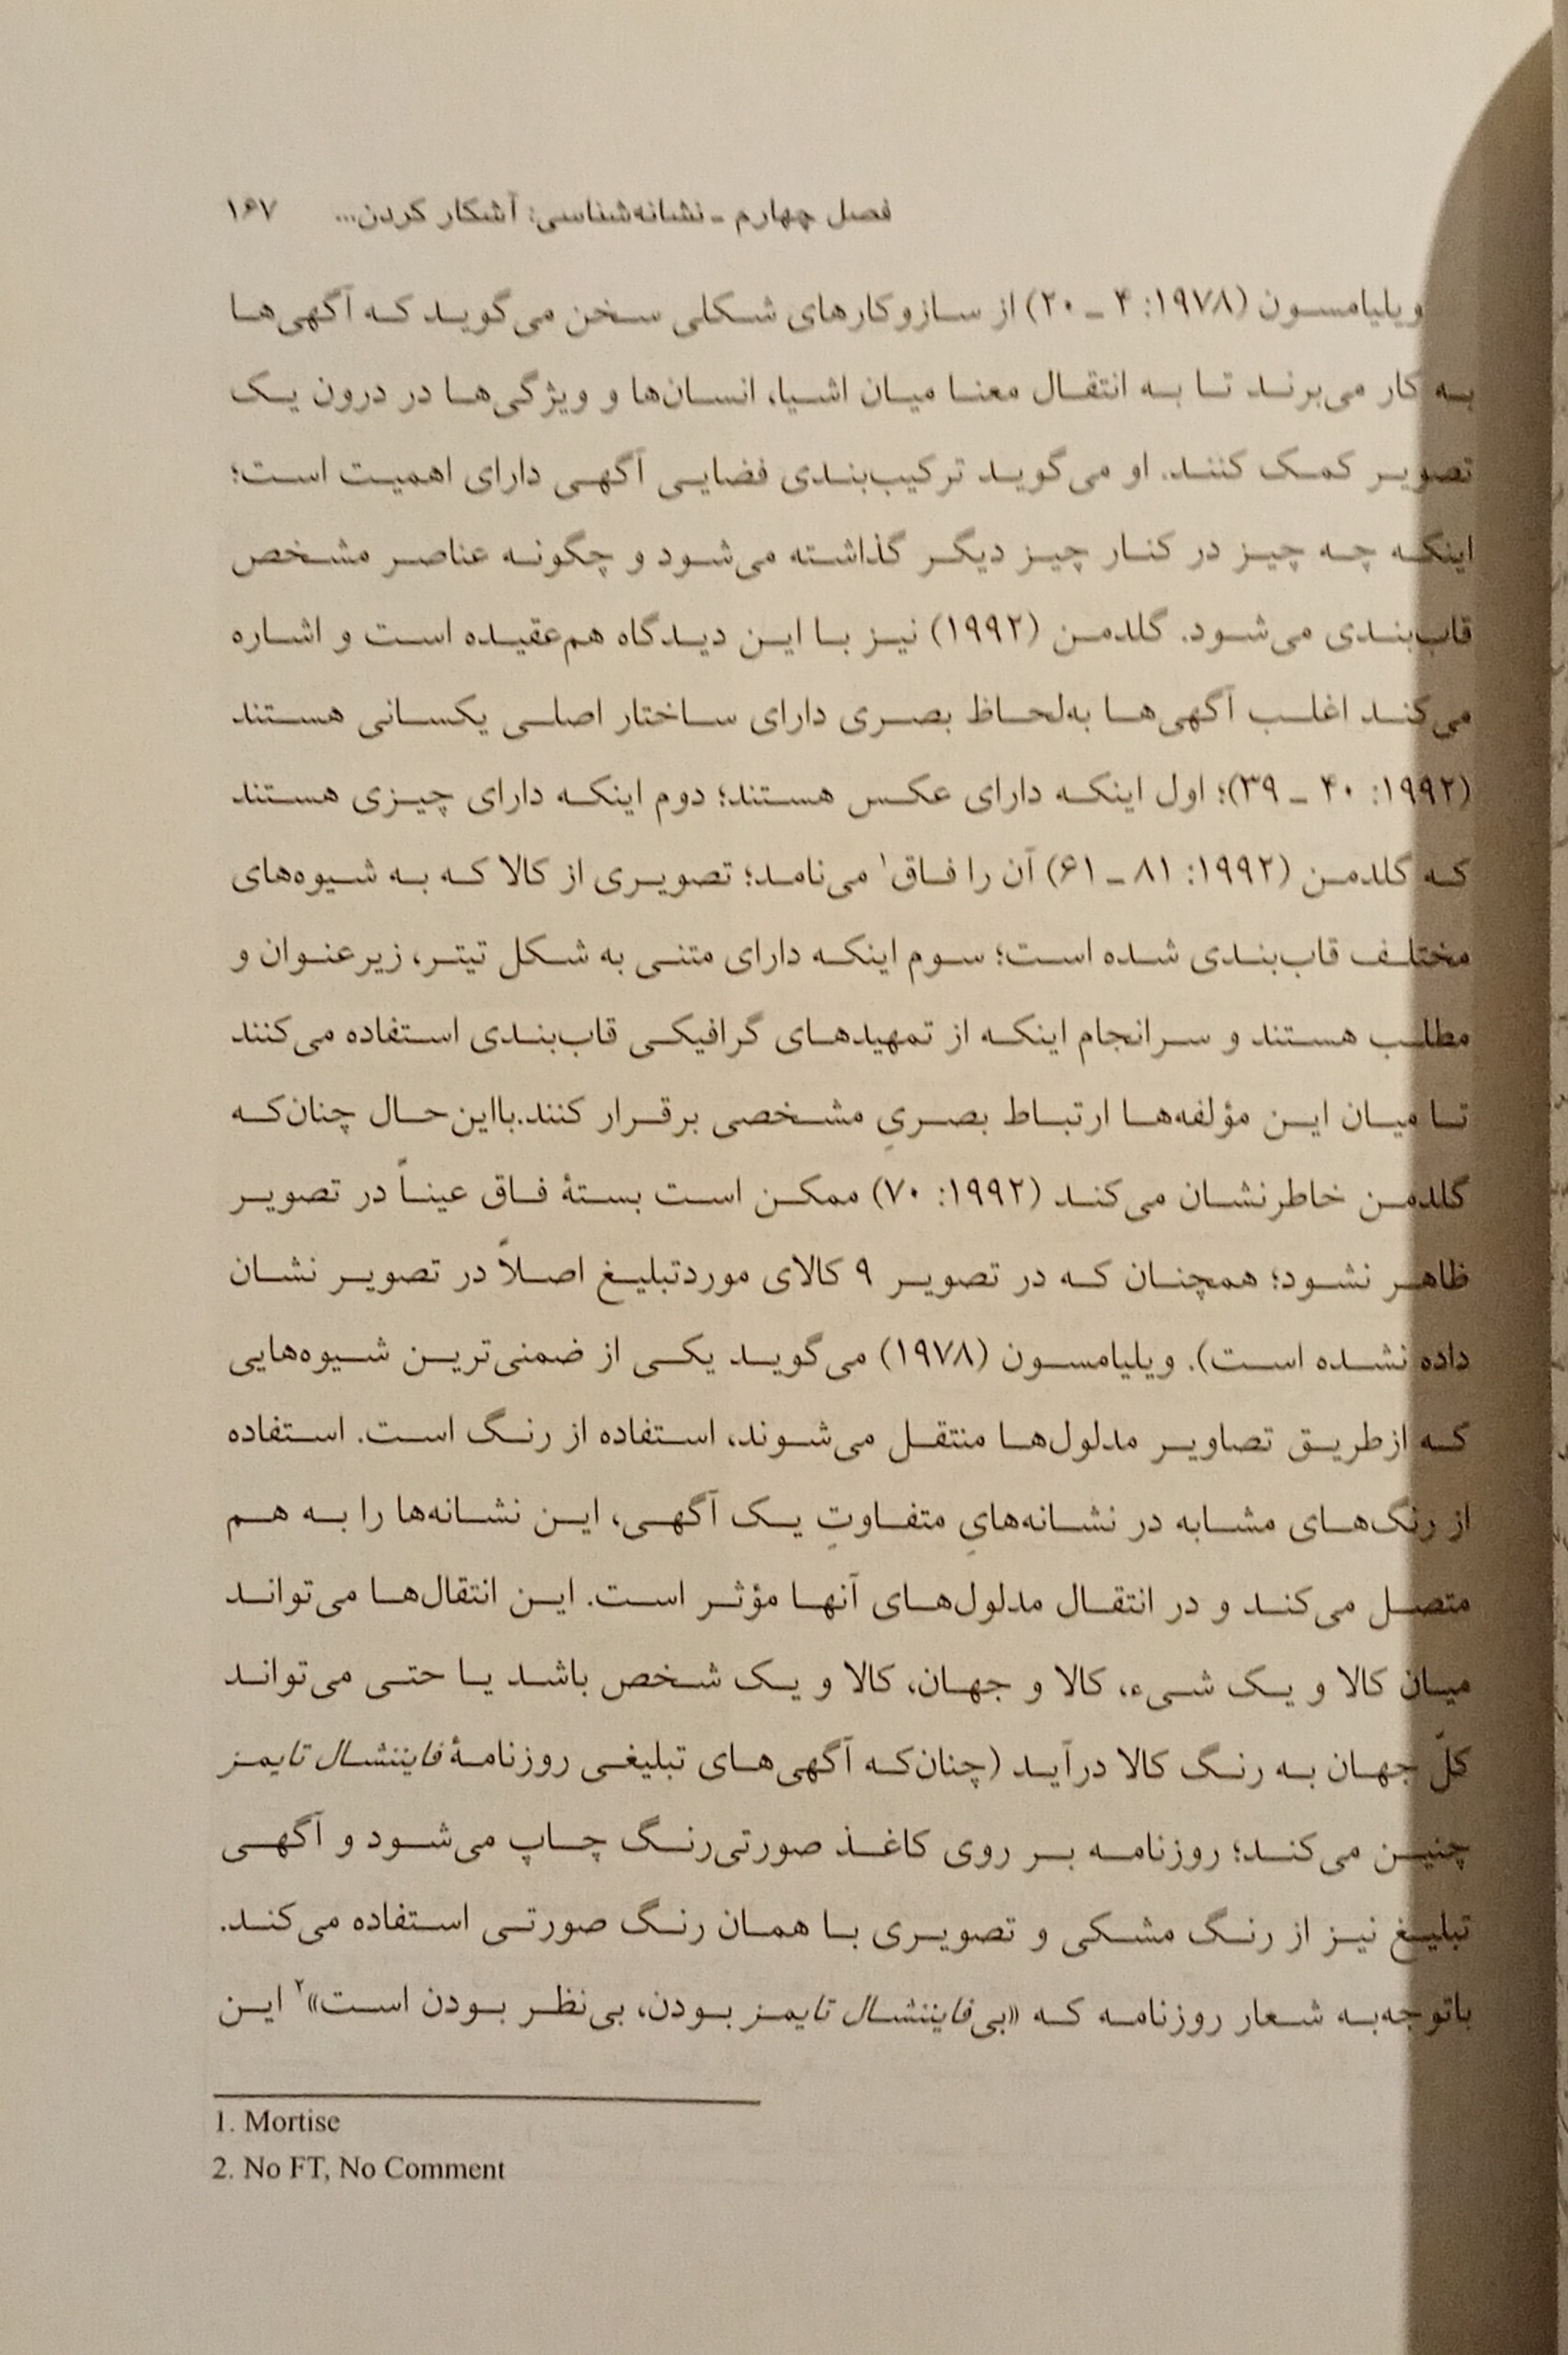 فصل چهارم ـ نشانه‌شناسی: آشکار کردن... ۱۶۷
ویلیامسون (۱۹۷۸: ۴ ـ ۲۰) از سازوکارهای شکلی سخن می‌گوید که آگهی‌ها
به کار می‌برند تا به انتقال معنا میان اشیا، انسان‌ها و ویژگی‌ها در درون یک
تصویر کمک کنند. او می‌گوید ترکیب‌بندی فضایی آگهی دارای اهمیت است؛
اینکه چه چیز در کنار چیز دیگر گذاشته می‌شود و چگونه عناصر مشخص
قاب‌بندی می‌شود. گلدمن (۱۹۹۲) نیز با این دیدگاه هم‌عقیده است و اشاره
می‌کند اغلب آگهی‌ها به‌لحاظ بصری دارای ساختار اصلی یکسانی هستند
(۱۹۹۲: ۴۰ ـ ۳۹)؛ اول اینکه دارای عکس هستند؛ دوم اینکه دارای چیزی هستند
که گلدمن (۱۹۹۲: ۸۱ ـ ۶۱) آن را فاق۱ می‌نامد؛ تصویری از کالا که به شیوه‌های
مختلف قاب‌بندی شده است؛ سوم اینکه دارای متنی به شکل تیتر، زیرعنوان و
مطلب هستند و سرانجام اینکه از تمهیدهای گرافیکی قاب‌بندی استفاده می‌کنند
تا میان این مؤلفه‌ها ارتباط بصریِ مشخصی برقرار کنند.بااین‌حال چنان‌که
گلدمن خاطرنشان می‌کند (۱۹۹۲: ۷۰) ممکن است بستهٔ فاق عیناً در تصویر
ظاهر نشود؛ همچنان که در تصویر ۹ کالای موردتبلیغ اصلاً در تصویر نشان
داده نشده است). ویلیامسون (۱۹۷۸) می‌گوید یکی از ضمنی‌ترین شیوه‌هایی
که ازطریق تصاویر مدلول‌ها منتقل می‌شوند، استفاده از رنگ است. استفاده
از رنگ‌های مشابه در نشانه‌هایِ متفاوتِ یک آگهی، این نشانه‌ها را به هم
متصل می‌کند و در انتقال مدلول‌های آنها مؤثر است. این انتقال‌ها می‌تواند
میان کالا و یک شیء، کالا و جهان، کالا و یک شخص باشد یا حتی می‌تواند
کلّ جهان به رنگ کالا درآید (چنان‌که آگهی‌های تبلیغی روزنامهٔ فایننشال تایمز
چنین می‌کند؛ روزنامه بر روی کاغذ صورتی‌رنگ چاپ می‌شود و آگهی
تبلیغ نیز از رنگ مشکی و تصویری با همان رنگ صورتی استفاده می‌کند.
باتوجه‌به شعار روزنامه که «بی‌فایننشال تایمز بودن، بی‌نظر بودن است»۲ این
1. Mortise
2. No FT, No Comment